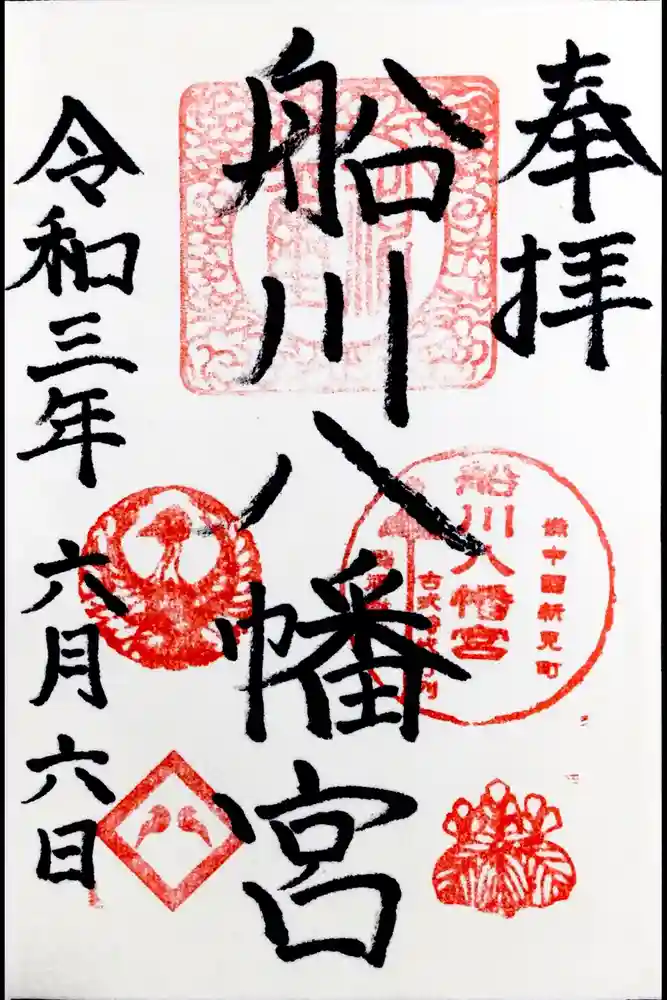 奉拝
船川八幡宮
令和三年 六月六日
備中國新見町
船川八幡宮